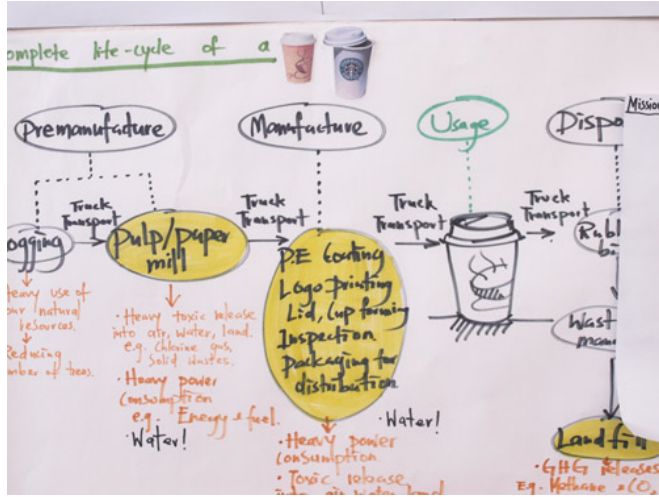 omplete life-cycle of a
Mission
Premanufacture
Manufacture
Usage
Dispo
Truck Transport
Truck Transport
Truck Transport
Truck Transport
ogging
Pulp/paper
mill
P.E Coating
Logo Printing
Lid, Cup forming
Inspection
Packaging for
distribution
Rub
bi
Wast
mana
Landfill
Heavy use of
our natural
resources.
Reducing
mber of trees.
· Heavy toxic release
into air, water, land.
e.g. Chlorine gas,
Solid Wastes.
· Heavy power
consumption
e.g. Energy & fuel.
· Water!
· Water!
· Heavy power
consumption
· Toxic release
into air water land
· GHG releases
E.g. Methane &